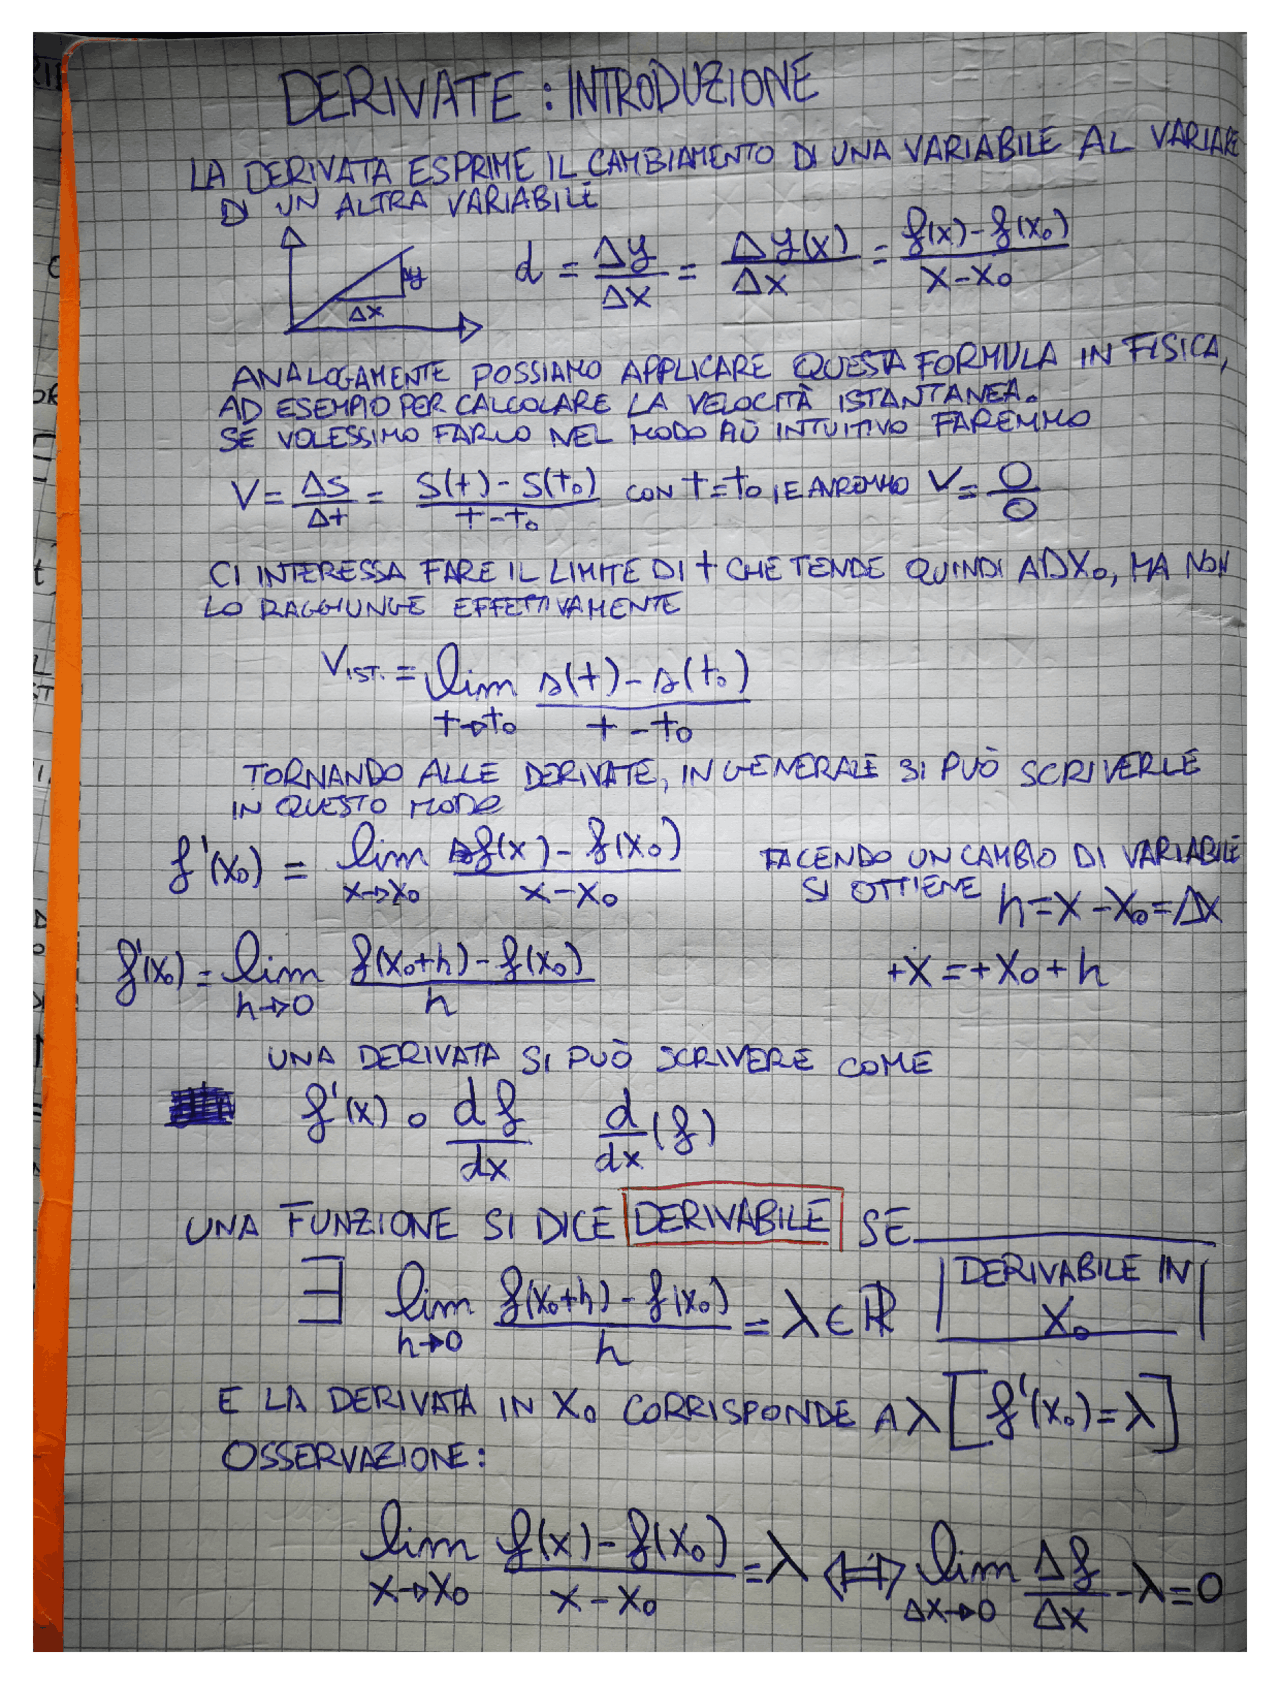 DERIVATE: INTRODUZIONE
LA DERIVATA ESPRIME IL CAMBIAMENTO DI UNA VARIABILE AL VARIARE
DI UN ALTRA VARIABILE
Δy
Δx
d = Δy/Δx = Δy(x)/Δx = f(x)-f(x₀)/x-x₀
ANALOGAMENTE POSSIAMO APPLICARE QUESTA FORMULA IN FISICA,
AD ESEMPIO PER CALCOLARE LA VELOCITÀ ISTANTANEA.
SE VOLESSIMO FARLO NEL MODO PIÙ INTUITIVO FAREMMO
V = Δs/Δt = S(t)-S(t₀)/t-t₀ CON t=t₀, E AVREMMO V= 0/0
CI INTERESSA FARE IL LIMITE DI t CHE TENDE QUINDI AD X₀, MA NON
LO RAGGIUNGE EFFETTIVAMENTE
V IST. = lim t→t₀ s(t)-s(t₀)/t-t₀
TORNANDO ALLE DERIVATE, IN GENERALE SI PUÒ SCRIVERLE
IN QUESTO MODO
f'(x₀) = lim x→x₀ f(x)-f(x₀)/x-x₀
FACENDO UN CAMBIO DI VARIABILE
SI OTTIENE h=x-x₀=Δx
f'(x₀) = lim h→0 f(x₀+h)-f(x₀)/h
+x=+x₀+h
UNA DERIVATA SI PUÒ SCRIVERE COME
f'(x) o df/dx d/dx (f)
UNA FUNZIONE SI DICE DERIVABILE SE
∃ lim h→0 f(x₀+h)-f(x₀)/h = λ∈ℝ
DERIVABILE IN
X₀
E LA DERIVATA IN X₀ CORRISPONDE A λ [f'(x₀)=λ]
OSSERVAZIONE:
lim x→x₀ f(x)-f(x₀)/x-x₀ = λ ⟺ lim Δx→0 Δf/Δx -λ=0